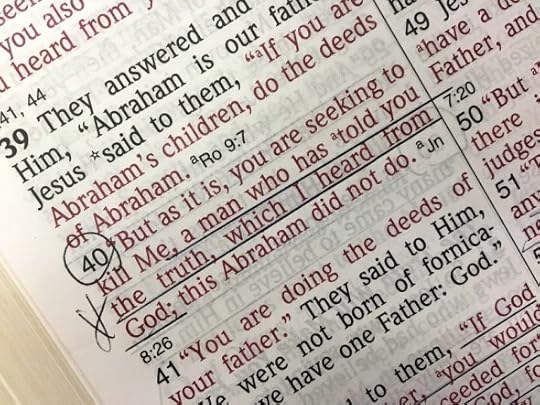 you also
heard from
41, 44
39 They answered and
Him, "Abraham is our
Jesus *said to them, "aIf you are
Abraham's children, do the deeds
of Abraham. aRo 9:7
40 "But as it is, you are seeking to
kill Me, a man who has atold you
the truth, which I heard from
God; this Abraham did not do. aJn
8:26
41 "You are doing the deeds of
your father." They said to Him,
were not born of fornica-
have one Father: God."
to them, "If God
you would
49
ahave a
Father, and
7:20
50 "But
there
judge
51